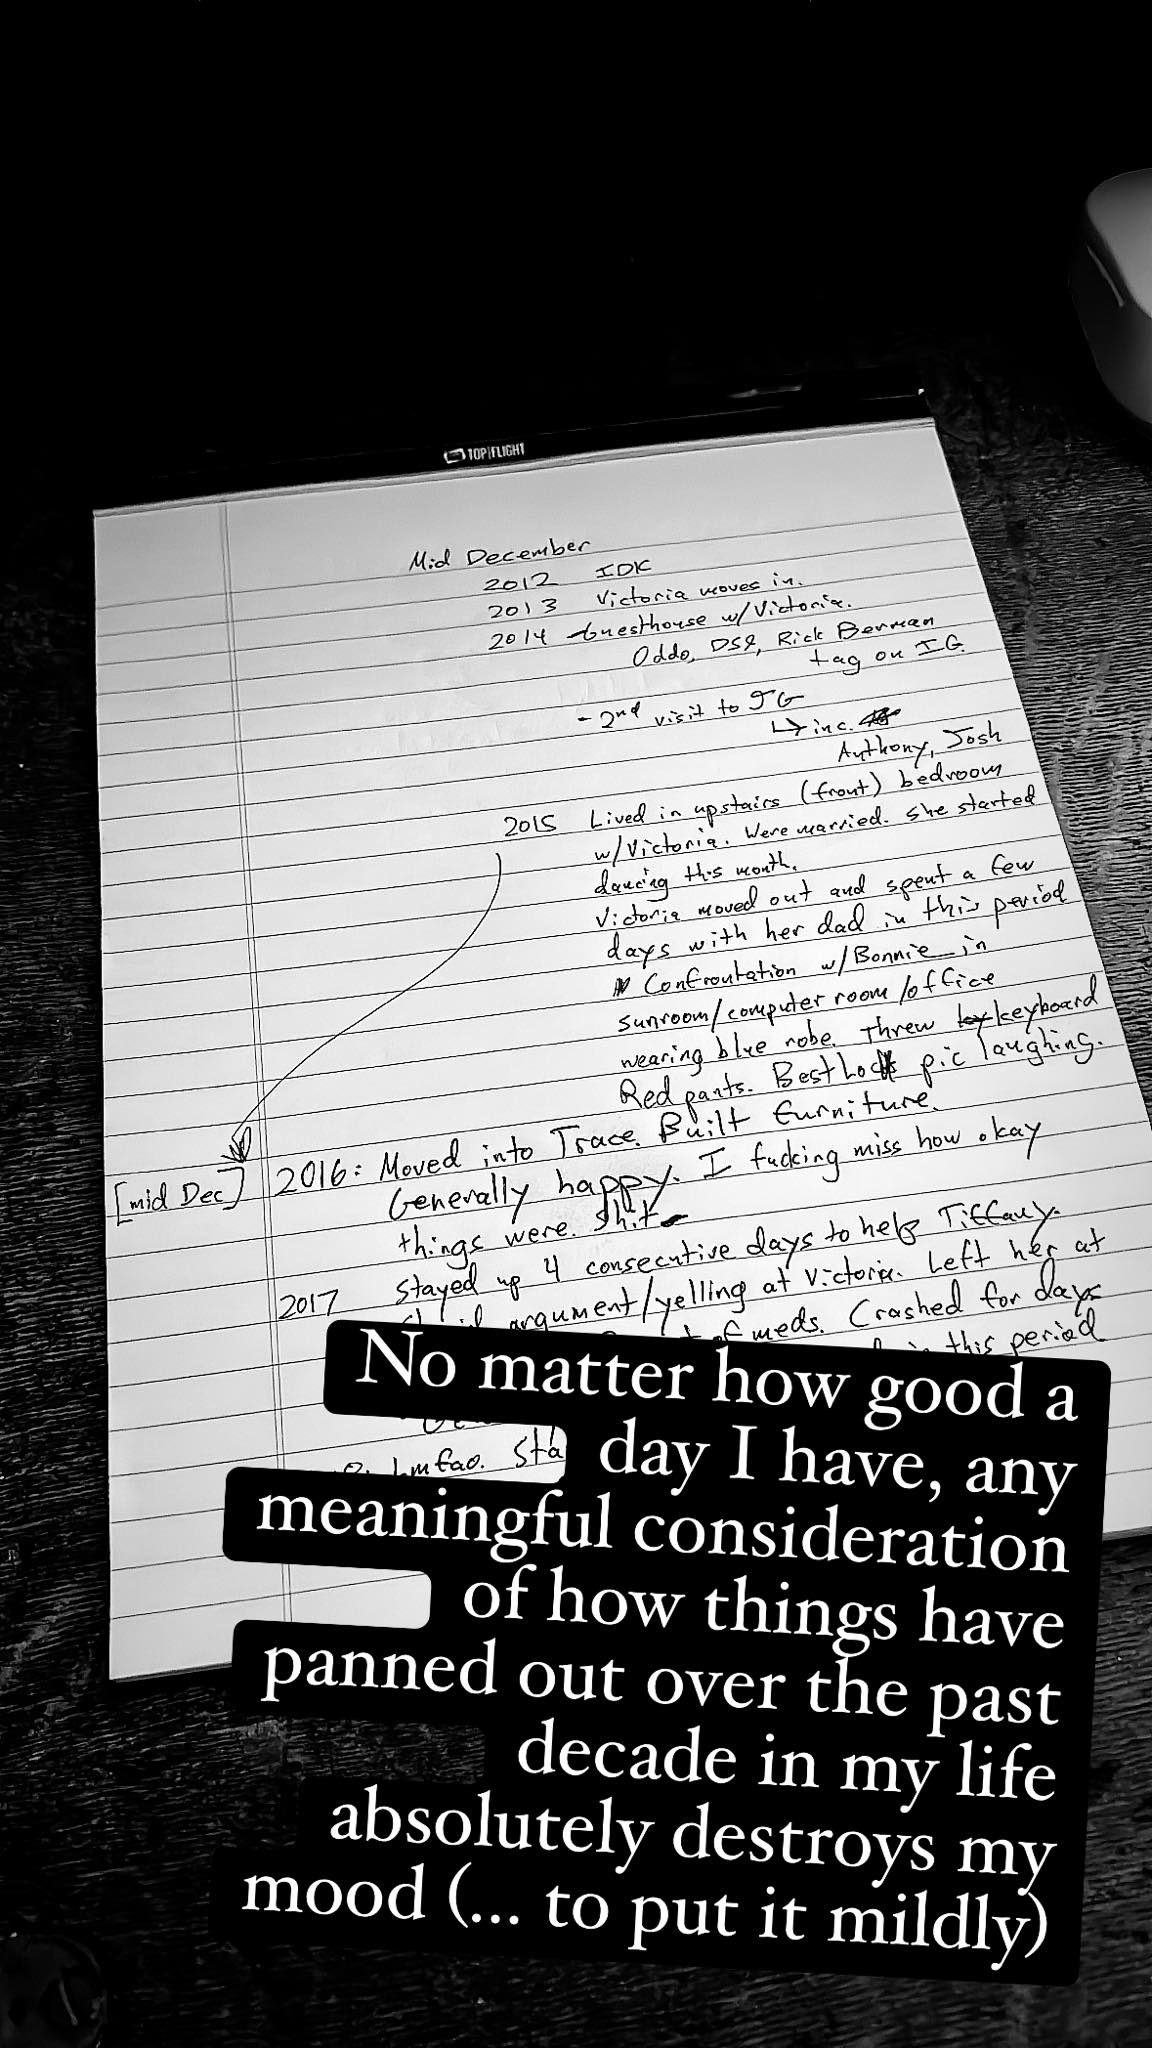 TOP FLIGHT
Mid December
2012 IDK
2013 Victoria moves in.
2014 Guesthouse w/Victoria.
Oddo, DSL, Rick Berman
tag on IG
- 2nd visit to JG
↳ inc.
Anthony, Josh
2015 Lived in upstairs (front) bedroom
w/Victoria. Were married. She started
dancing this month.
Victoria moved out and spent a few
days with her dad in this period
Confrontation w/Bonnie in
sunroom/computer room/office
wearing blue robe. Threw keyboard
Red pants. Best pic laughing.
[mid Dec] 2016: Moved into Trace. Built furniture.
Generally happy. I fucking miss how okay
things were. Shit
2017 Stayed up 4 consecutive days to help Tiffany.
argument/yelling at Victoria. Left her at
of meds. Crashed for days
in this period
lmfao. Sta
No matter how good a
day I have, any
meaningful consideration
of how things have
panned out over the past
decade in my life
absolutely destroys my
mood (... to put it mildly)